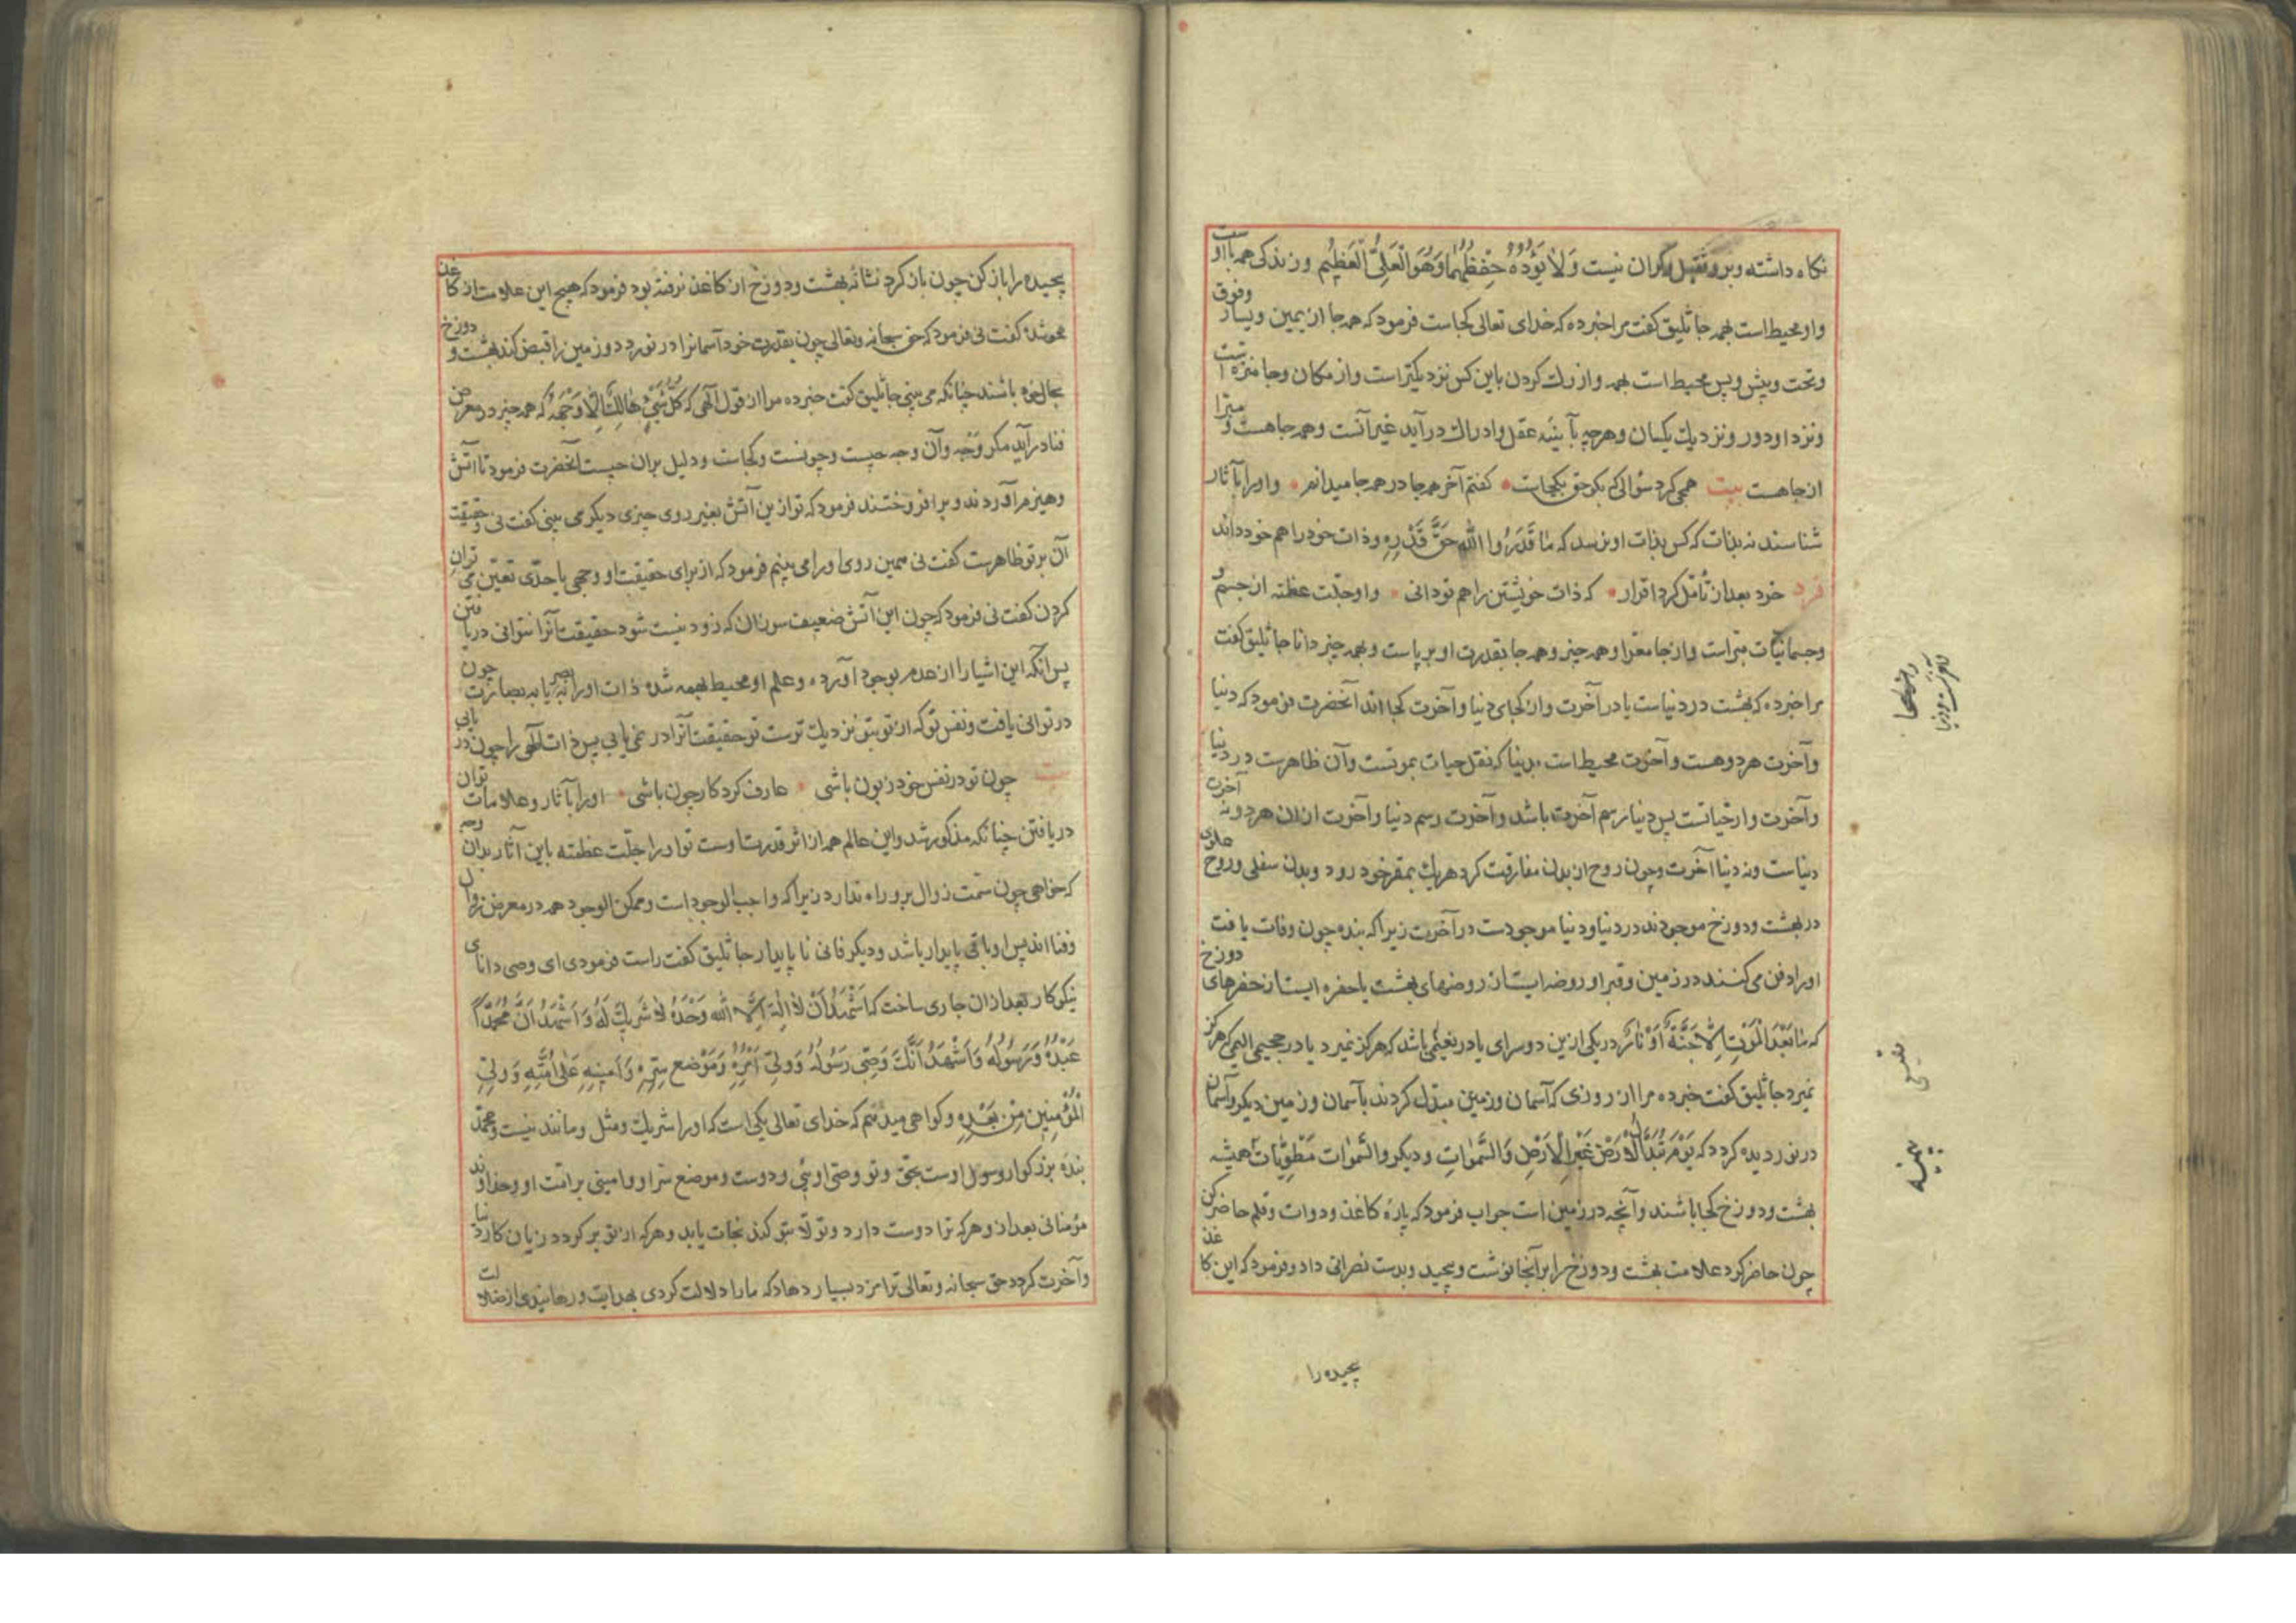 نکاه داشته وبرو ثقیل وکران نیست وَلَا یَؤُدُهُ حِفْظُهُمَا وَهُوَ الْعَلِیُّ الْعَظِیْم وزندکی همه با او
واو محیط است بهمه جا ثلیق کفت مرا خبر ده که خدای تعالی کجاست فرمود که همه جا از یمین ویسار وفوق
وتحت وپیش وپس محیط است بهمه واز رك کردن باین کس نزدیکتر است واز مکان وجا منزه است
ونزد او دور ونزدیك یکسان وهرچه بآیینه عقل وادراك درآید غیر آنست وهمه جا هست و مبرا
از جا هست بیت همی کرد سؤالی که بکو حق بکجاست کفتم آخر همه جا در همه جا میدانم واورا بآثار
شناسند نه بذات که کس بذات او نرسد که مَا قَدَرُوا اللّٰهَ حَقَّ قَدْرِهِ وذات خود را هم خود داند
فرد خود بعد از تأمل کرد اقرار که ذات خویشتن را هم تو دانی واو جلّت عظمته از جسم و
وجسمانیات مبرا است واز جا معرا وهمه چیز وهمه جا بقدرت او برپاست وبهمه چیز دانا جاثلیق کفت
مرا خبر ده که بهشت در دنیاست یا در آخرت واز کجای دنیا وآخرت کجا اند آنحضرت فرمود که دنیا
وآخرت هر دو هست وآخرت محیط است بدنیا که نقل حیات بموتست وآن ظاهرست در دنیا
وآخرت دار حیاتست پس دنیا رسم آخرت باشد وآخرت رسم دنیا وآخرت ازان هر دو نه آخرت
دنیاست ونه دنیا آخرت وچون روح از بدن مفارقت کرد هر یك بمقر خود رود وبدن سفلی وروح علوی
در بهشت ودوزخ موجودند در دنیا ودنیا موجودست در آخرت زیرا که بنده چون وفات یافت
اورا دفن می کنند در زمین وقبر او روضه ایست از روضهای بهشت یا حفره ایست از حفرهای دوزخ
که مَا بَعْدَ الْمَوْتِ اِلَّا جَنَّةٌ اَوْ نَارٌ در یکی ازین دو سرای یا در نعیمی باشد که هرکز نمیرد یا در جحیمی الیم که هرکز
نمیرد جاثلیق کفت خبر ده مرا از روزی که آسمان وزمین مبدل کردند بآسمان وزمین دیکر وآسمان
در نوردیده کردد که یَوْمَ تُبَدَّلُ الْاَرْضُ غَیْرَ الْاَرْضِ وَالسَّمٰوَاتِ ودیکر والسَّمٰوات مَطْوِیَّاتٌ همیشه
بهشت ودوزخ کجا باشند وآنچه در زمین است جواب فرمود که پارۀ کاغذ ودوات وقلم حاضر کن
چون حاضر کرد علامت بهشت ودوزخ را بر آنجا نوشت وپیچید وبدست نصرانی داد وفرمود که این کاغذ
پیچیده را
پیچیده را باز کن چون باز کرد نشانه بهشت ودوزخ از کاغذ نرفته بود فرمود که هیچ این علامت از کاغذ
محو شد کفت نی فرمود که حق سبحانه وتعالی چون بقدرت خود آسمانرا درنوردد وزمین را قبض کند بهشت و دوزخ
بحال خود باشند چنانکه می بینی جاثلیق کفت خبر ده مرا از قول الٓهی که کُلُّ شَیْءٍ هَالِكٌ اِلَّا وَجْهَهُ که همه چیز در معرض
فنا درآید مکر وجه وآن وجه چیست وچونست وکجاست ودلیل بران چیست آنحضرت فرمود تا آتش
وهیزم آوردند وبرافروختند فرمود که تو ازین آتش بغیر روی چیزی دیکر می بینی کفت نی و حقیقت
آن بر تو ظاهرست کفت نی همین روی اورا می بینم فرمود که از برای حقیقت او وجهی یا حدّی تعیین می توان
کردن کفت نی فرمود که چون این آتش ضعیف سوزان که زود نیست شود حقیقت آنرا نتوانی دریافتن
پس آنکه این اشیا را از عدم بوجود آورده وعلم او محیط بهمه شده ذات اورا ببصر یا به بصارت چون
در توانی یافت ونفس تو که از تو بتو نزدیك توست تو حقیقت آنرا در نمی یابی پس ذات الٓهی را چون در یابی
بیت چون تو در نفس خود زبون باشی عارف کردکار چون باشی اورا بآثار وعلامات توان
دریافتن چنانکه مذکور شد واین عالم همه از اثر قدرت اوست تو اورا جلّت عظمته باین آثار بدان وجه
که خواهی چون سمت زوال برو راه ندارد زیرا که واجب الوجود است وممکن الوجود همه در معرض زوال
وفنا اند پس او باقی پایدار باشد ودیکر فانی نا پایدار جاثلیق کفت راست فرمودی ای وصی دانای
نیکوکار بعد ازان جاری ساخت که اَشْهَدُ اَنْ لَا اِلٰهَ اِلَّا اللّٰه وَحْدَهُ لَا شَرِیكَ لَهُ وَاَشْهَدُ اَنَّ مُحَمَّدًا
عَبْدُهُ وَرَسُولُهُ وَاَشْهَدُ اَنَّكَ وَصِیُّ رَسُولِهُ وَوَلِیُّ اَمْرِهِ وَمَوْضِع سِرِّهِ وَاَمِینِهِ عَلٰی اُمَّتِهِ وَوَلِیّ
الْمُؤْمِنِینَ مِنْ بَعْدِهِ وکواهی میدهم که خدای تعالی یکی است که اورا شریك ومثل ومانند نیست ومحمّد
بنده بزرکوار ورسول اوست بحق وتو وصی اویی ودوست وموضع سرّ او وامینی بر امّت او وخداوند
مؤمنانی بعد ازو هرکه ترا دوست دارد وتولّا بتو کند نجات یابد وهرکه از تو برکردد زیان کار دنیا
وآخرت کردد حق سبحانه وتعالی ترا مزد بسیار دهاد که مارا دلالت کردی بهدایت ورهانیدی از ضلالت